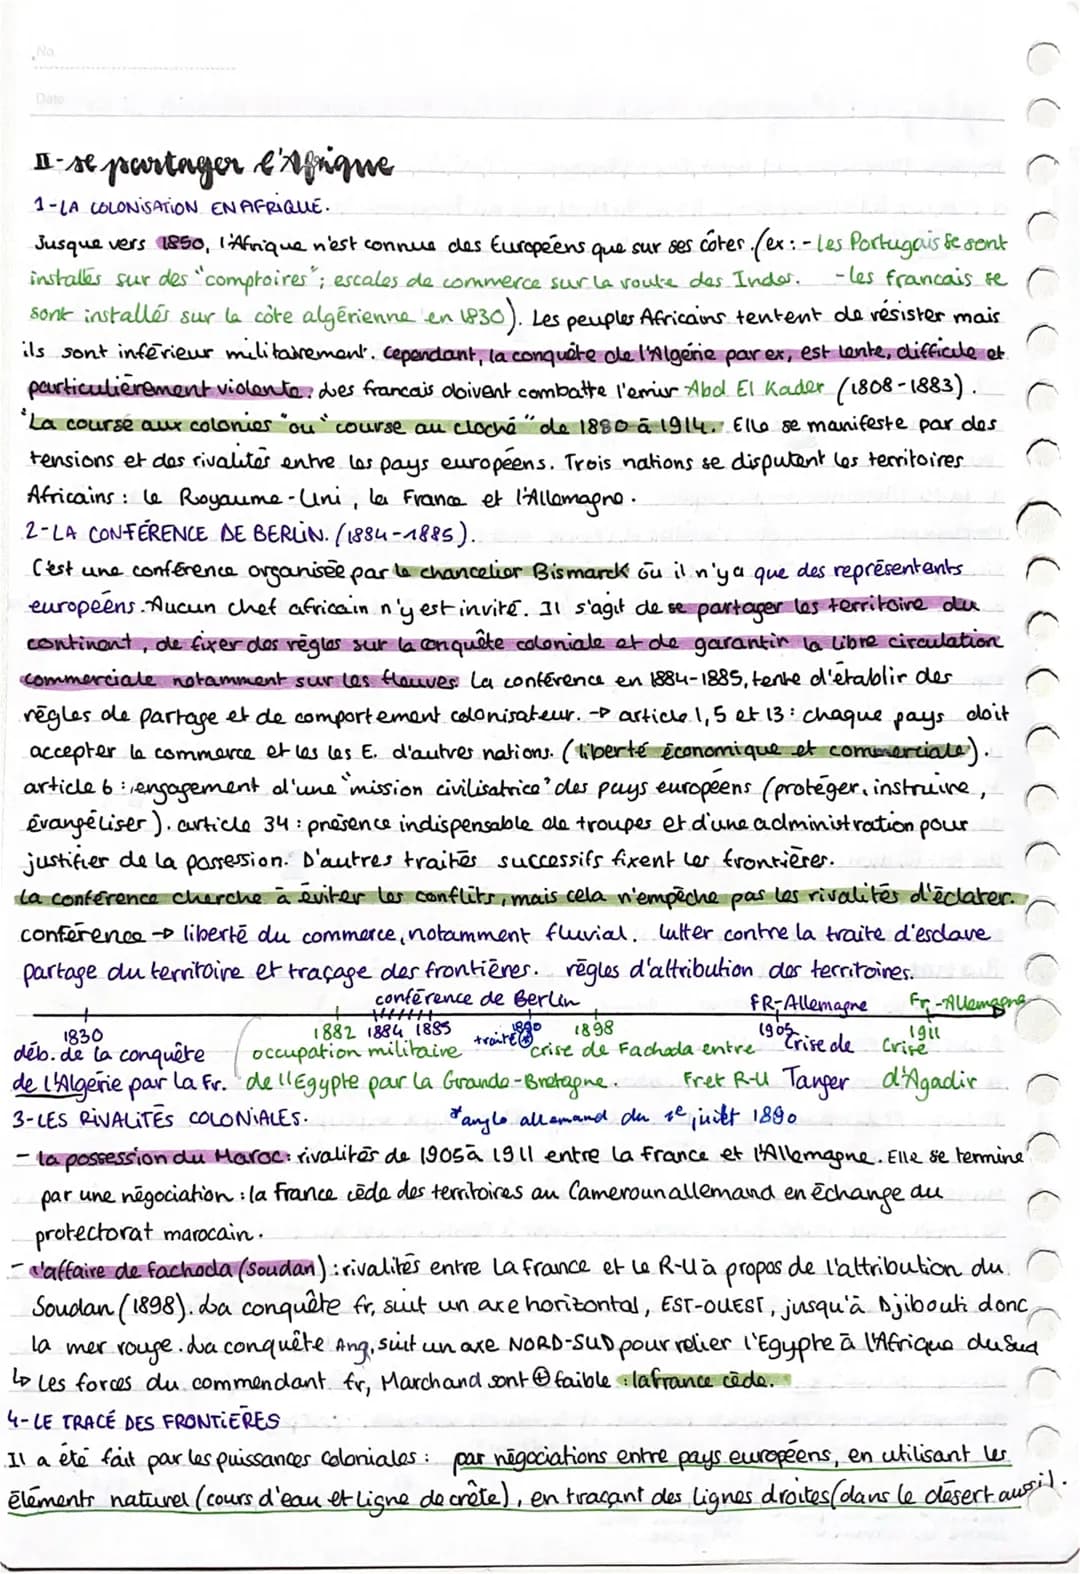 No.
Date
II-se partager l'Afrique
1-LA COLONISATION EN AFRIQUE.
Jusque vers 1850, l'Afrique n'est connue des Européens que sur ses côtes. (ex: - Les Portugais se sont
installés sur des "comptoires"; escales de commerce sur la route des Indes. - les francais se
sont installés sur la côte algérienne en 1830). Les peuples Africains tentent de résister mais
ils sont inférieur militairement. Cependant, la conquête de l'Algérie par ex, est lente, difficile et
particulièrement violente. Les francais doivent combatte l'emiur Abd El Kader (1808-1883).
"La course aux colonies" ou "course au cloché" de 1880 à 1914. Elle se manifeste par des
tensions et des rivalités entre les pays européens. Trois nations se disputent les territoires
Africains : le Royaume-Uni, la France et l'Allemagne.
2-LA CONFÉRENCE DE BERLIN. (1884-1885).
C'est une conférence organisée par le chancelier Bismarck où il n'y a que des représentants
européens. Aucun chef africain n'y est invité. Il s'agit de se partager les territoire du
continent, de fixer des règles sur la conquête coloniale et de garantir la libre circulation
commerciale notamment sur les fleuves. La conférence en 1884-1885, tente d'établir des
règles de partage et de comportement colonisateur. → article 1, 5 et 13 : chaque pays doit
accepter le commerce et les les E. d'autres nations. (liberté économique et commerciale).
article 6 : engagement d'une "mission civilisatrice" des pays européens (protéger, instruire,
évangéliser). article 34 : présence indispensable de troupes et d'une administration pour
justifier de la possession. D'autres traités successifs fixent les frontières.
La conférence cherche à éviter les conflits, mais cela n'empêche pas les rivalités d'éclater.
conférence → liberté du commerce, notamment fluvial. lutter contre la traite d'esclave
partage du territoire et traçage des frontières. règles d'attribution des territoires.
conférence de Berlin FR-Allemagne Fr-Allemagne
1830 1882 1884 1885 1890 1898 1905 1911
déb. de la conquête occupation militaire traité* crise de Fachoda entre Crise de Crise
de l'Algérie par la Fr. de l'Egypte par la Grande-Bretagne. Fr et R-U Tanger d'Agadir
3-LES RIVALITÉS COLONIALES. *anglo allemand du 1er juillt 1890
- la possession du Maroc: rivalités de 1905 à 1911 entre la France et l'Allemagne. Elle se termine
par une négociation : la France cède des territoires au Cameroun allemand en échange du
protectorat marocain.
- l'affaire de Fachoda (Soudan) : rivalités entre la France et le R-U à propos de l'attribution du
Soudan (1898). La conquête fr, suit un axe horizontal, EST-OUEST, jusqu'à Djibouti donc
la mer rouge. La conquête Ang, suit un axe NORD-SUD pour relier l'Egypte à l'Afrique du Sud
↳ Les forces du commendant fr, Marchand sont ⊕ faible : la france cède.
4-LE TRACÉ DES FRONTIÈRES
Il a été fait par les puissances coloniales : par négociations entre pays européens, en utilisant les
éléments naturel (cours d'eau et ligne de crête), en traçant des lignes droites (dans le désert aussi).